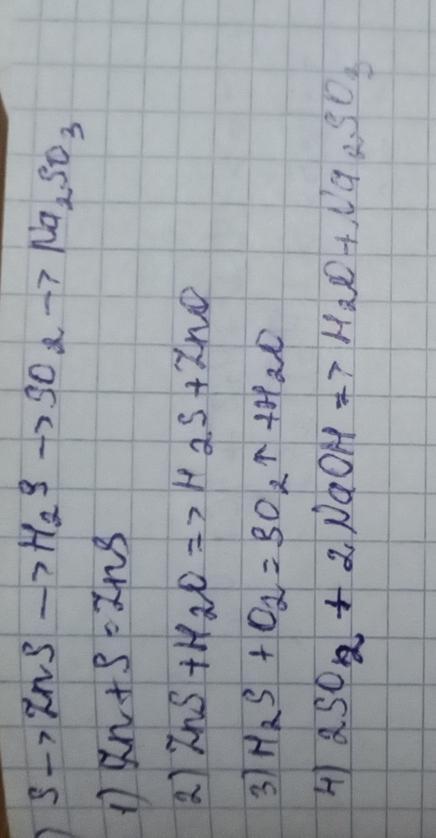 ) S → ZnS → H₂S → SO₂ → Na₂SO₃
1) Zn + S = ZnS
2) ZnS + H₂O => H₂S + ZnO
3) H₂S + O₂ = SO₂↑ + H₂O
4) 2SO₂ + 2NaOH => H₂O + Na₂SO₃